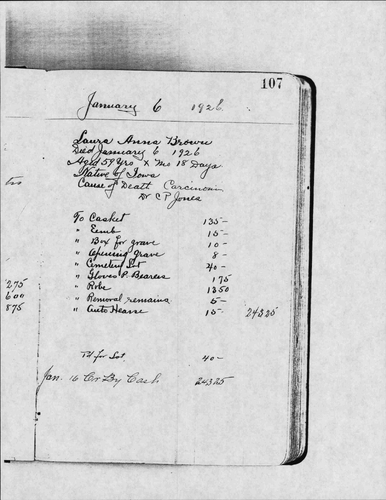 107
January 6 1926
Laura Anna Brown
Died January 6 1926
Aged 58 Yrs X Mo 18 Days
Native of Iowa
Cause of Death Carcinoma
Dr C P Jones
To Casket 135-
" Emb 15-
" Box for grave 10-
" Opening grave 8-
" Cemetery Lot 40-
" Gloves P. Bearers 175
275 " Robe 1350
600 " Removal remains 5-
875 " Auto Hearse 15- 24325
Pd for Lot 40-
Jan. 16 Cr By Cash 24325